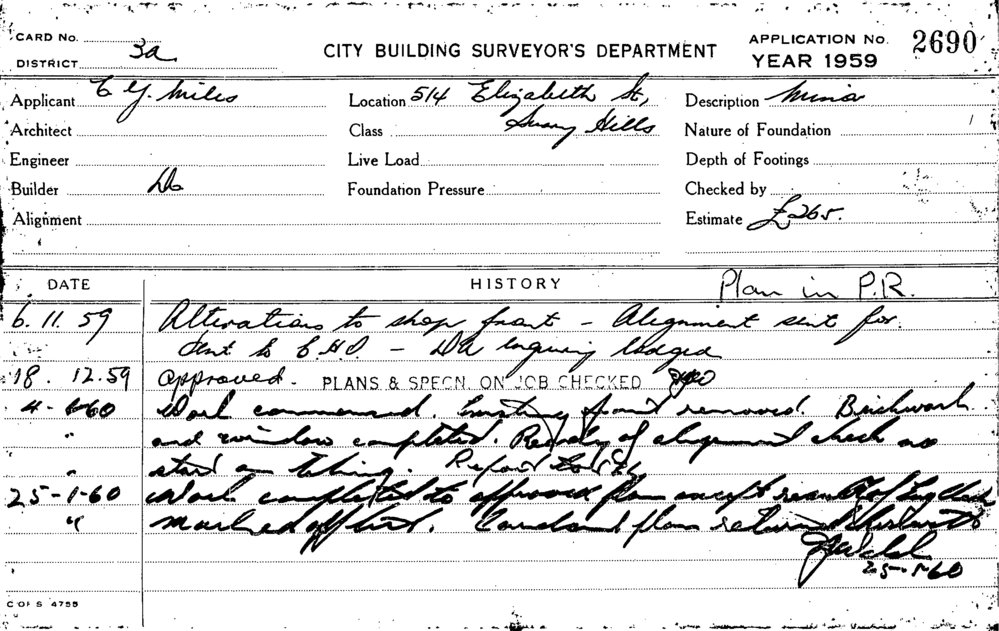 CARD No.
DISTRICT 3a
CITY BUILDING SURVEYOR'S DEPARTMENT
APPLICATION No. 2690
YEAR 1959
Applicant E Y. Miles
Location 514 Elizabeth St,
Surry Hills
Description Minor
Architect
Class
Nature of Foundation
Engineer
Live Load
Depth of Footings
Builder Do
Foundation Pressure
Checked by
Alignment
Estimate £265.
DATE
HISTORY
Plan in P.R.
6. 11. 59 Alterations to shop front - Alignment sent for.
Sent to C.H.I. - DA enquiry lodged
18. 12. 59 Approved. PLANS & SPECN. ON JOB CHECKED
4-1-60 Work commenced. Existing front removed. Brickwork
" and window completed. of alignment check no
" start on tiling.
25-1-60 Work completed to approved plan except
" marked off list. Card and plan returned
25-1-60
C OF S 4755